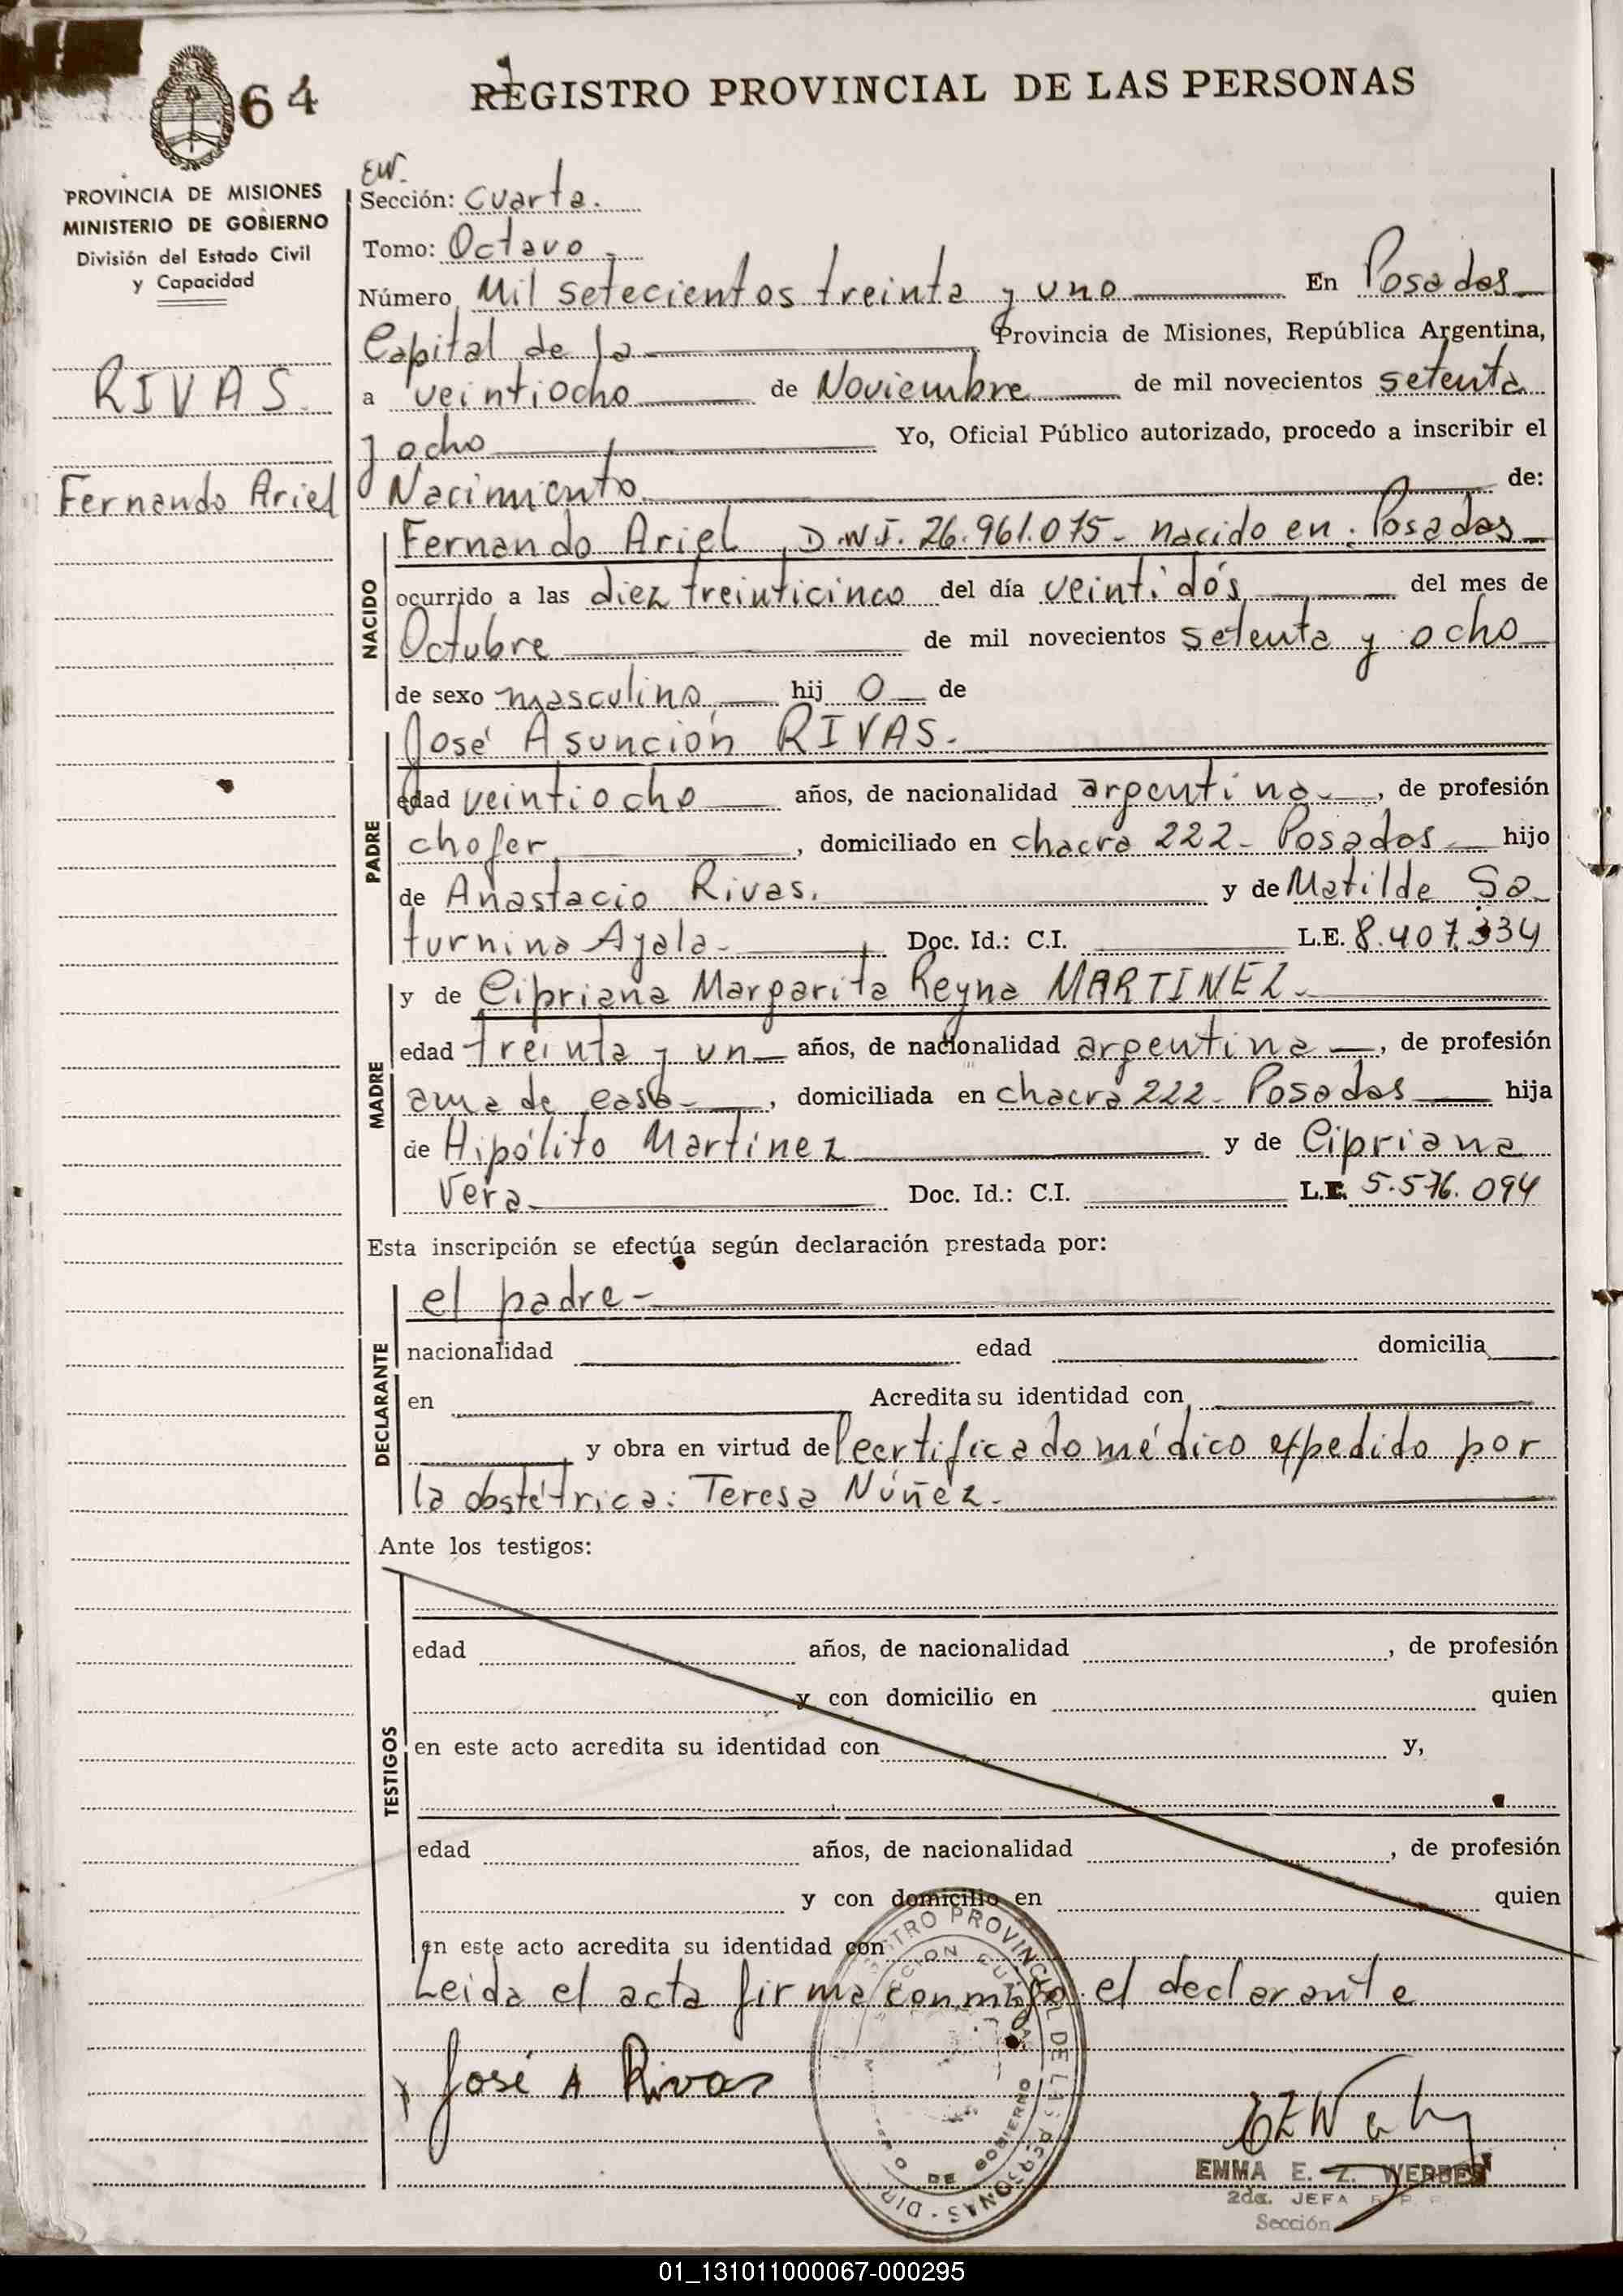 64
REGISTRO PROVINCIAL DE LAS PERSONAS
PROVINCIA DE MISIONES
MINISTERIO DE GOBIERNO
División del Estado Civil
y Capacidad
RIVAS
Fernando Ariel
EW.
Sección: Cuarta.
Tomo: Octavo
Número Mil setecientos treinta y uno En Posadas
Capital de la Provincia de Misiones, República Argentina,
a veintiocho de Noviembre de mil novecientos setenta
y ocho Yo, Oficial Público autorizado, procedo a inscribir el
Nacimiento de:
NACIDO
Fernando Ariel, D.N.I. 26.961.075- nacido en: Posadas
ocurrido a las diez treinticinco del día veintidós del mes de
Octubre de mil novecientos setenta y ocho
de sexo masculino, hij o de
PADRE
José Asunción RIVAS.
edad veintiocho años, de nacionalidad argentina, de profesión
chofer, domiciliado en chacra 222- Posadas hijo
de Anastacio Rivas. y de Matilde Sa
turnina Ayala- Doc. Id.: C.I. L.E. 8.407.334
MADRE
y de Cipriana Margarita Reyna MARTINEZ.
edad treinta y un años, de nacionalidad argentina, de profesión
ama de casa-, domiciliada en chacra 222- Posadas hija
de Hipólito Martínez y de Cipriana
Vera Doc. Id.: C.I. L.E. 5.576.094
Esta inscripción se efectúa según declaración prestada por:
DECLARANTE
el padre-
nacionalidad edad domicilia
en Acredita su identidad con
y obra en virtud del certificado médico expedido por
la obstétrica: Teresa Núñez.
Ante los testigos:
TESTIGOS
edad años, de nacionalidad , de profesión
y con domicilio en quien
en este acto acredita su identidad con y,
edad años, de nacionalidad , de profesión
y con domicilio en quien
en este acto acredita su identidad con
Leida el acta firma conmigo el declarante
José A Rivas
EMMA E. Z. WERBES
2da. JEFA
Sección
01_131011000067-000295